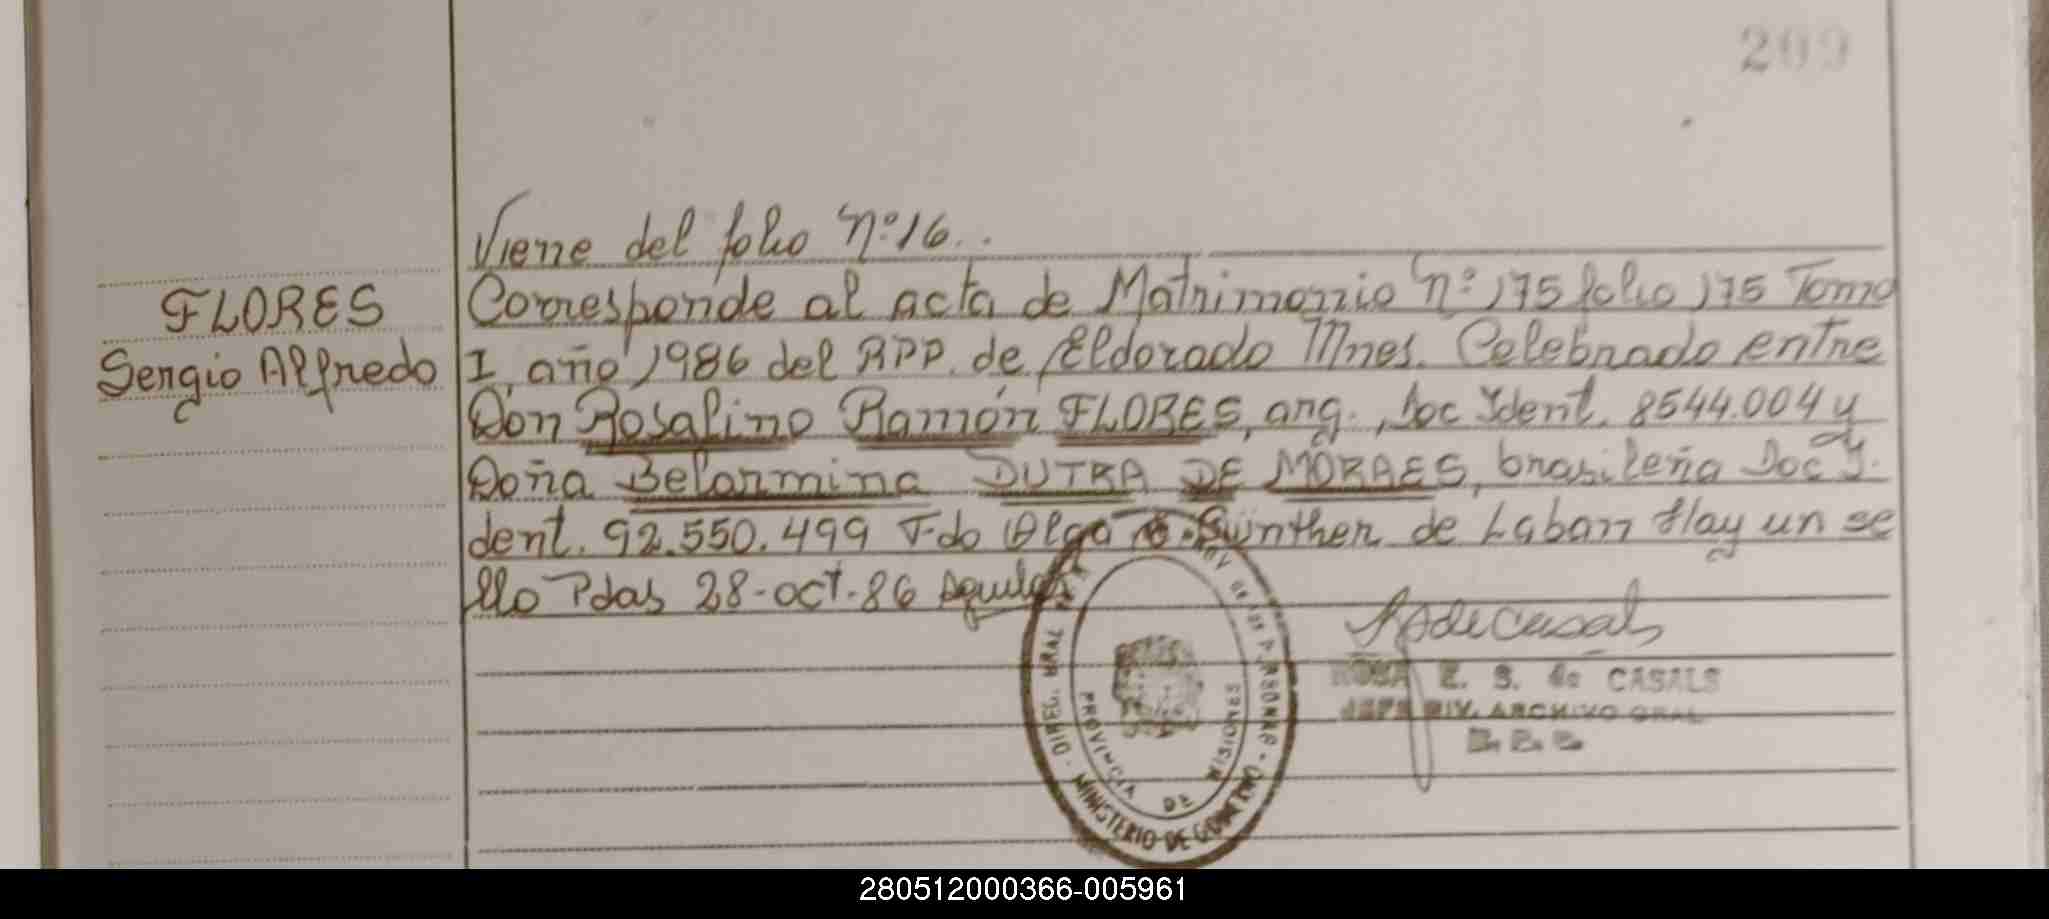 209
Viene del folio nº 16..
FLORES
Sergio Alfredo
Corresponde al acta de Matrimonio nº 175 folio 175 Tomo
I año 1986 del RPP. de Eldorado Mnes. Celebrado entre
Don Rosalino Ramón FLORES, arg., Doc Ident. 8544.004 y
Doña Belarmina DUTRA DE MORAES, brasileña Doc I.
dent. 92.550.499 F.do Olga Günther de Laban Hay un se
llo Pdas 28-oct.-86
ROSA E. S. de CASALS
JEFE DIV. ARCHIVO GRAL
MINISTERIO DE GOBIERNO
PROVINCIA DE MISIONES
280512000366-005961